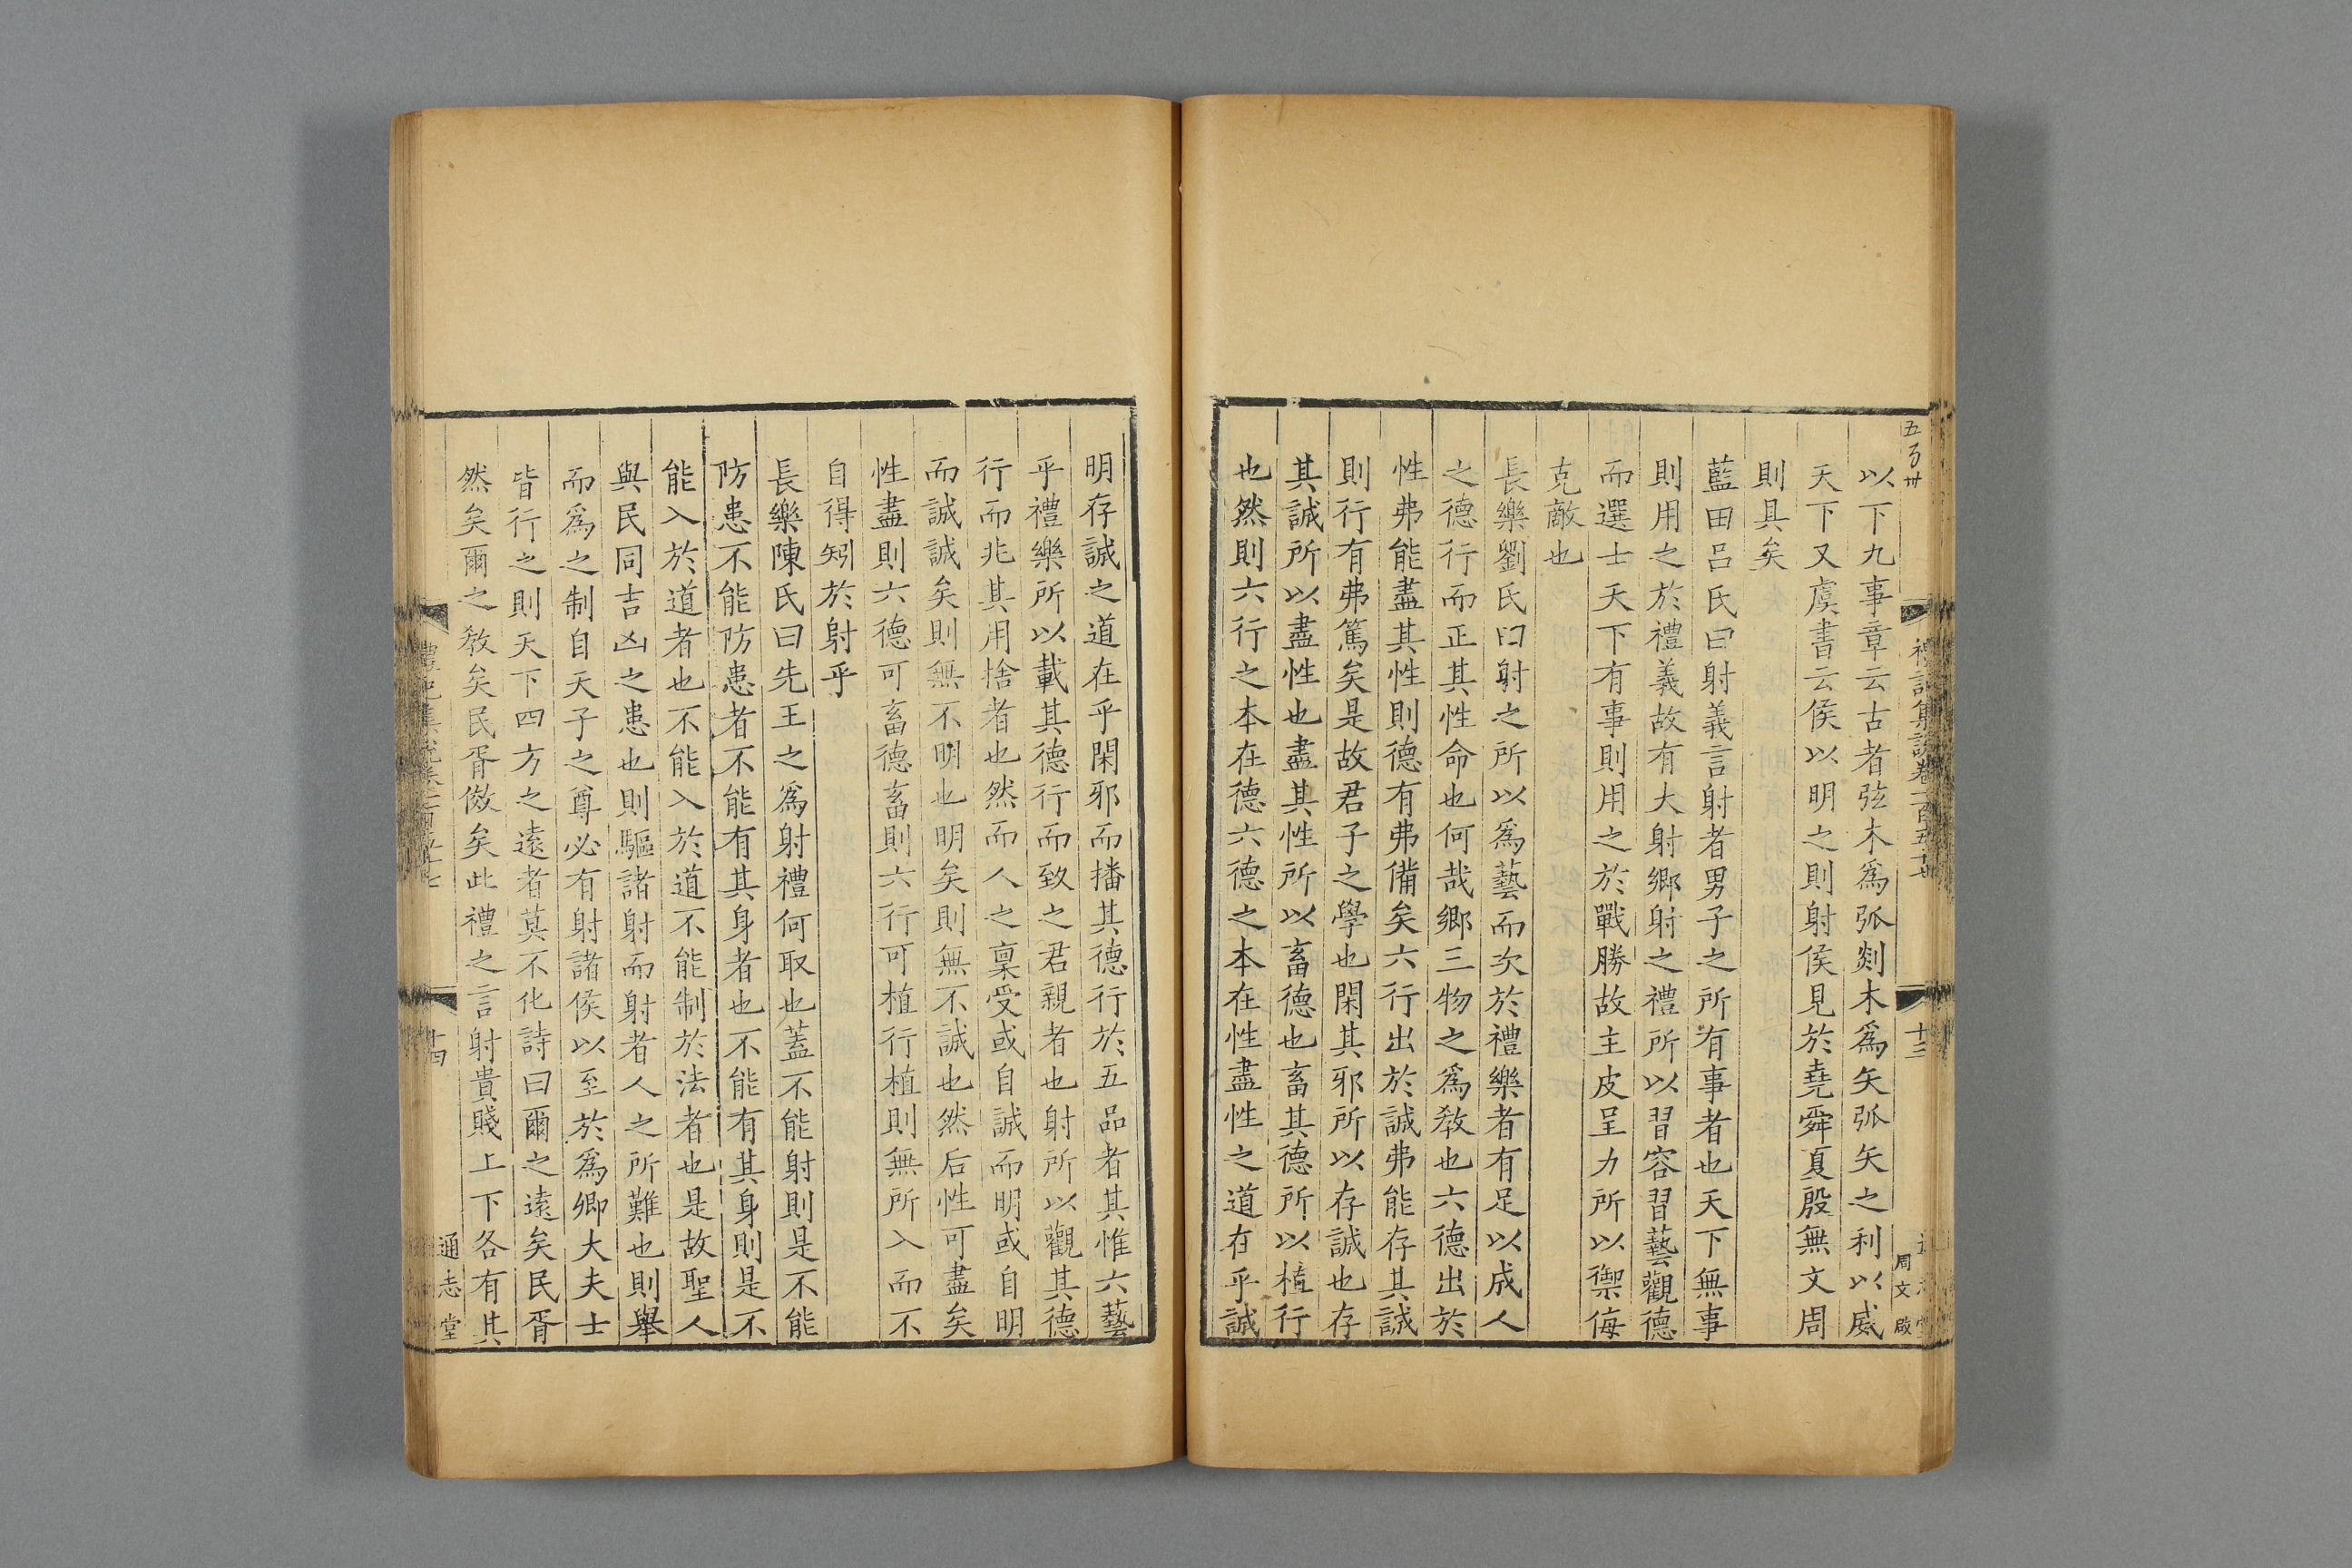 以下九事章云古者弦木爲弧剡木爲矢弧矢之利以威
天下又虞書云侯以明之則射侯見於堯舜夏殷無文周
則具矣
藍田呂氏曰射義言射者男子之所有事者也天下無事
則用之於禮義故有大射鄉射之禮所以習容習藝觀德
而選士天下有事則用之於戰勝故主皮呈力所以禦侮
克敵也
長樂劉氏曰射之所以爲藝而次於禮樂者有足以成人
之德行而正其性命也何哉鄉三物之爲敎也六德出於
性弗能盡其性則德有弗備矣六行出於誠弗能存其誠
則行有弗篤矣是故君子之學也閑其邪所以存誠也存
其誠所以盡性也盡其性所以畜德也畜其德所以植行
也然則六行之本在德六德之本在性盡性之道在乎誠
五百卅
禮記集說卷一百五十七
十三
周文啟
明存誠之道在乎閑邪而播其德行於五品者其惟六藝
乎禮樂所以載其德行而致之君親者也射所以觀其德
行而兆其用捨者也然而人之稟受或自誠而明或自明
而誠誠矣則無不明也明矣則無不誠也然后性可盡矣
性盡則六德可畜德畜則六行可植行植則無所入而不
自得矧於射乎
長樂陳氏曰先王之爲射禮何取也蓋不能射則是不能
防患不能防患者不能有其身者也不能有其身則是不
能入於道者也不能入於道不能制於法者也是故聖人
與民同吉凶之患也則驅諸射而射者人之所難也則舉
而爲之制自天子之尊必有射諸侯以至於爲卿大夫士
皆行之則天下四方之遠者莫不化詩曰爾之遠矣民胥
然矣爾之敎矣民胥傚矣此禮之言射貴賤上下各有其
禮記集說卷一百五十七
十四
通志堂